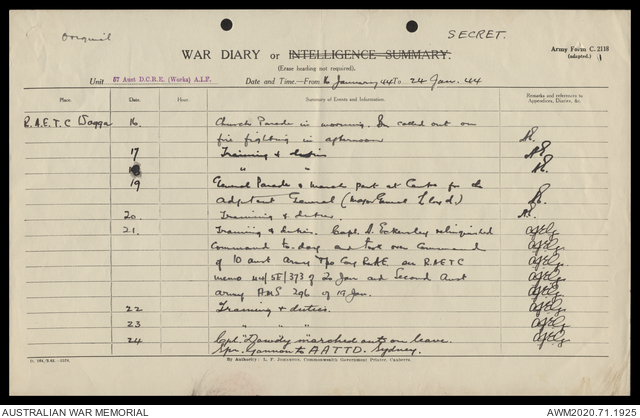 SECRET.
WAR DIARY or INTELLIGENCE SUMMARY.
Army Form C. 2118
(adapted.)
(Erase heading not required).
Unit 57 Aust D.C.R.E. (Works) A.I.F. Date and Time.—From 16 January 44 To 24 Jan. 44
Place. Date. Hour. Summary of Events and Information. Remarks and references to
Appendices, Diaries, &c.
R.A.E.T.C Wagga 16. Church Parade in morning. called out on
fire fighting in afternoon
17 Training & duties
18 " "
19 General Parade & march past at Centre for the
Adjutant General (Major General Lloyd)
20. Training & duties.
21. Training & duties. Capt. Eckersley relinquished
command to-day and took over command
of 10 Aust Army Tps Coy RAE on RAETC
memo 44/SE/373 of 20 Jan and Second Aust
Army AMS 296 of 19 Jan.
22 Training & duties.
23 " " "
24 Cpl. Dowdy marched out on leave.
Spr. Gannon to A A T T D. Sydney.
By Authority: L. F. Johnston, Commonwealth Government Printer, Canberra.
AUSTRALIAN WAR MEMORIAL AWM2020.71.1925